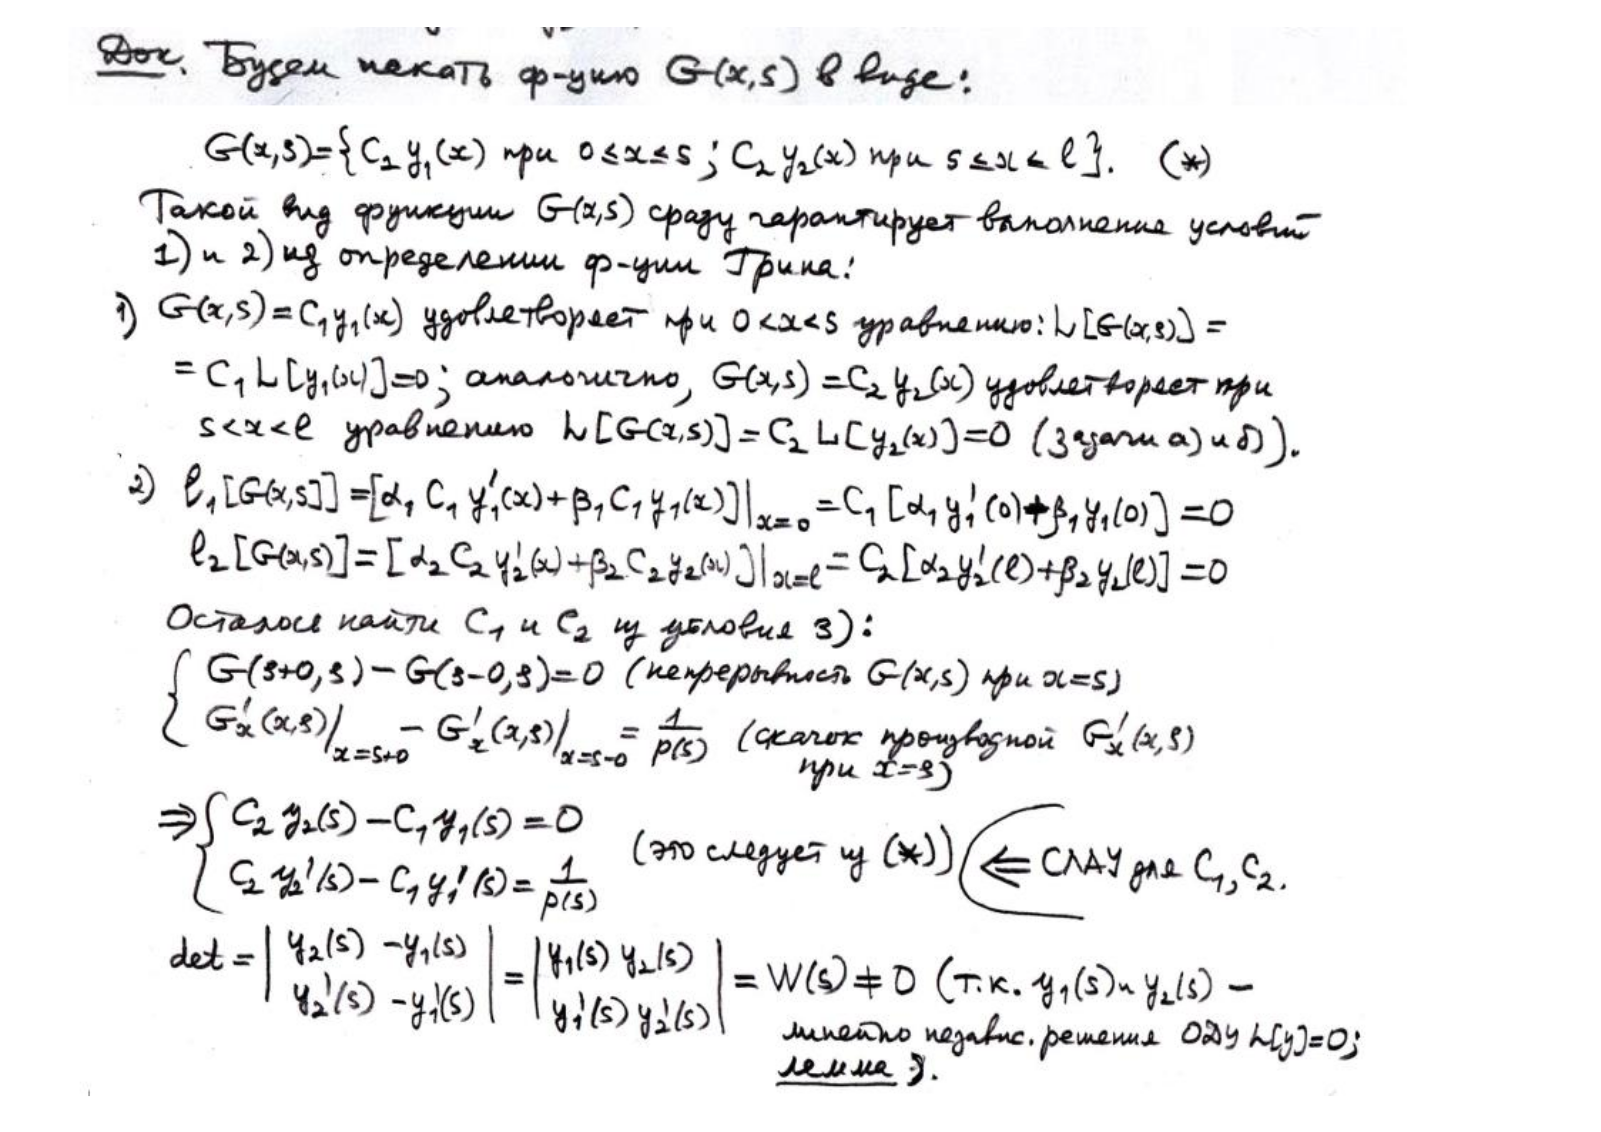 Док. Будем искать ф-цию G(x,s) в виде:
G(x,s)={C₁ y₁(x) при 0≤x≤s; C₂ y₂(x) при s≤x≤l}. (*)
Такой вид функции G(x,s) сразу гарантирует выполнение условий
1) и 2) из определении ф-ции Грина:
1) G(x,s)=C₁y₁(x) удовлетворяет при 0<x<s уравнению: L[G(x,s)] =
= C₁ L[y₁(x)]=0; аналогично, G(x,s)=C₂ y₂(x) удовлетворяет при
s<x<l уравнению L[G(x,s)]=C₂ L[y₂(x)]=0 (задачи а) и б)).
2) l₁[G(x,s)] =[α₁ C₁ y₁'(x)+β₁C₁y₁(x)]|ₓ₌₀ =C₁ [α₁ y₁'(0)+β₁y₁(0)] =0
l₂[G(x,s)]=[α₂ C₂ y₂'(x)+β₂C₂y₂(x)]|ₓ₌ₗ= C₂[α₂y₂'(l)+β₂y₂(l)] =0
Осталось найти C₁ и C₂ из условия 3):
{ G(s+0,s) − G(s−0,s)=0 (непрерывность G(x,s) при x=s)
G'ₓ(x,s)|ₓ₌ₛ₊₀ − G'ₓ(x,s)|ₓ₌ₛ₋₀ = 1/p(s) (скачок производной G'ₓ(x,s)
при x=s)
⇒ { C₂ y₂(s) − C₁ y₁(s) =0
C₂ y₂'(s) − C₁ y₁'(s) = 1/p(s) (это следует из (*)) ⇐ СЛАУ для C₁, C₂.
det = | y₂(s) −y₁(s) | = | y₁(s) y₂(s) | = W(s) ≠ 0 (т.к. y₁(s) и y₂(s) −
| y₂'(s) −y₁'(s) | | y₁'(s) y₂'(s) |
линейно независ. решения ОДУ L[y]=0;
лемма).